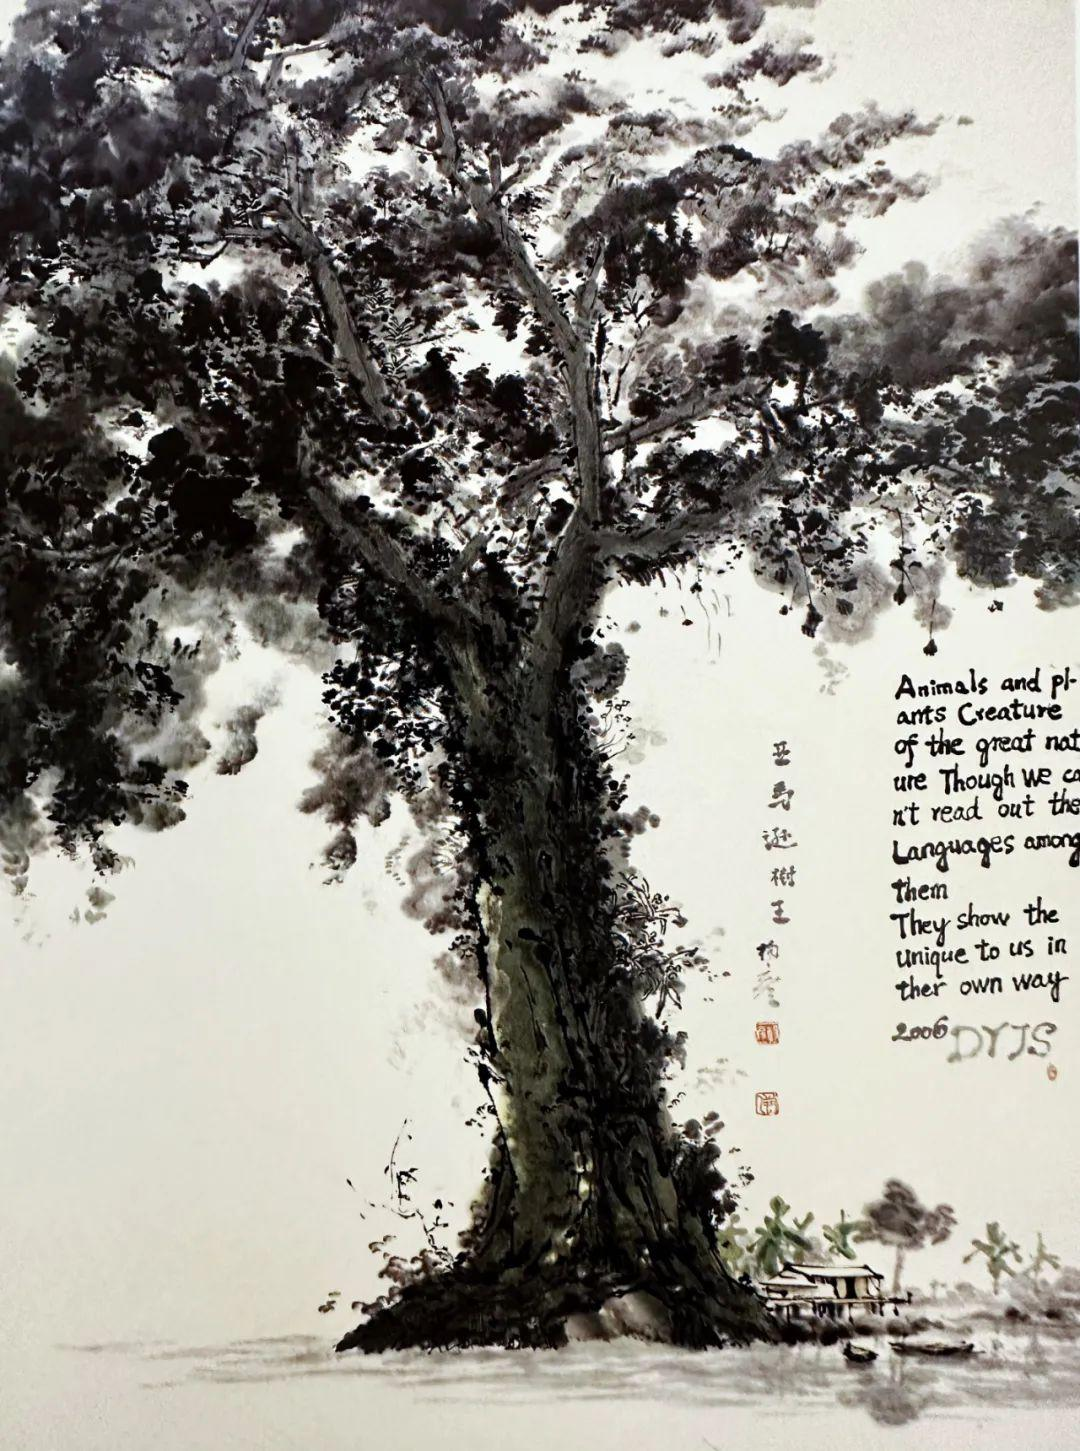 亚馬遜樹王
Animals and pl-
ants Creature
of the great nat
ure Though we ca
n't read out the
Languages among
them
They show the
unique to us in
ther own way
2006 DYJS